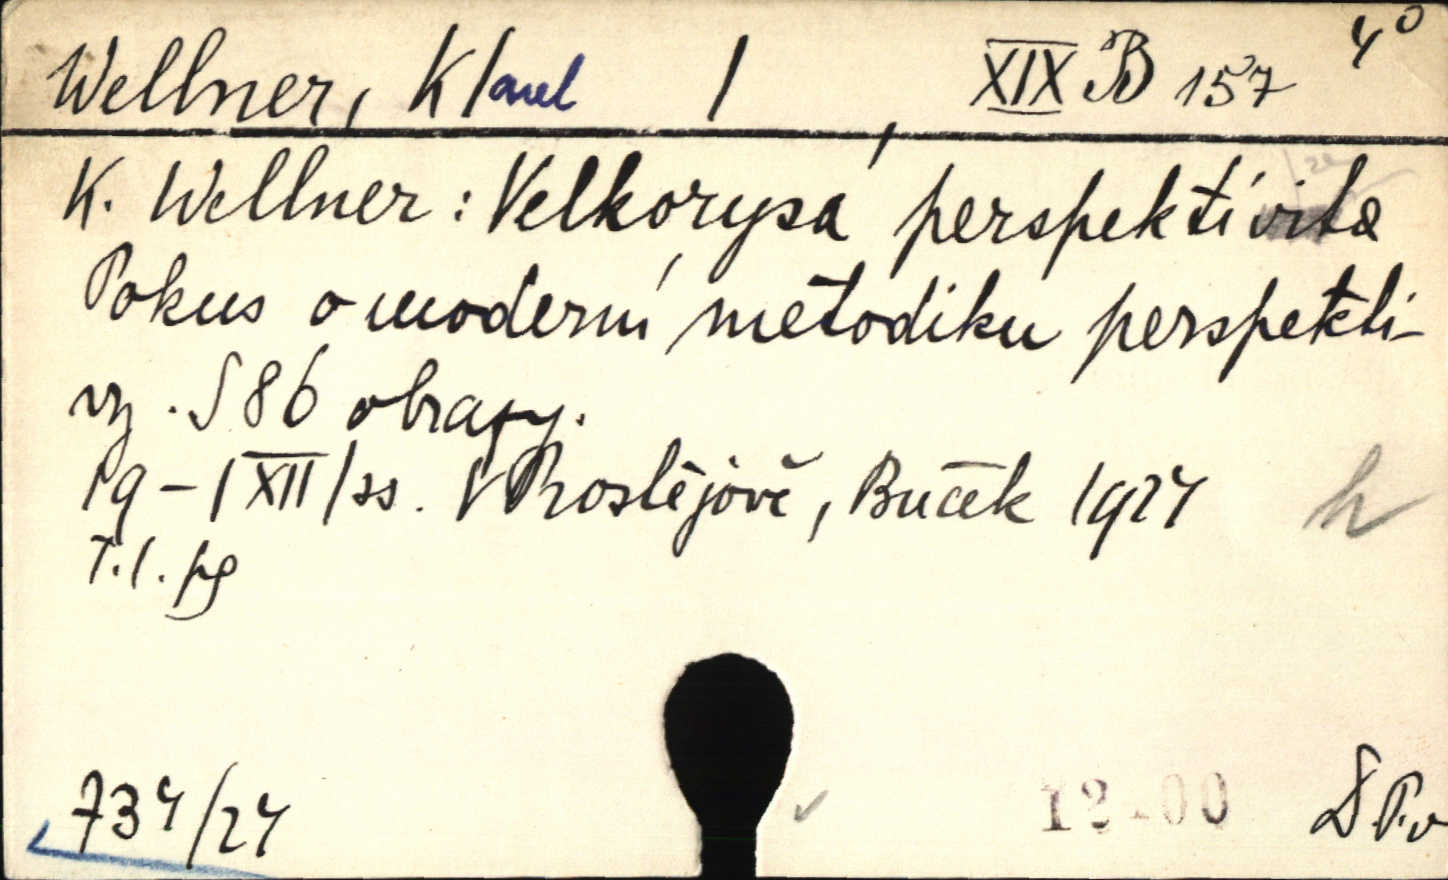 Wellner, K/arel / XIX B 157 4°
K. Wellner: Velkorysá perspektívita
Pokus o moderní metodiku perspekti-
vy. S 86 obrazy.
19 - / XII / ss. V Prostějově, Buček 1924
T.l. pg
734/24
12-00